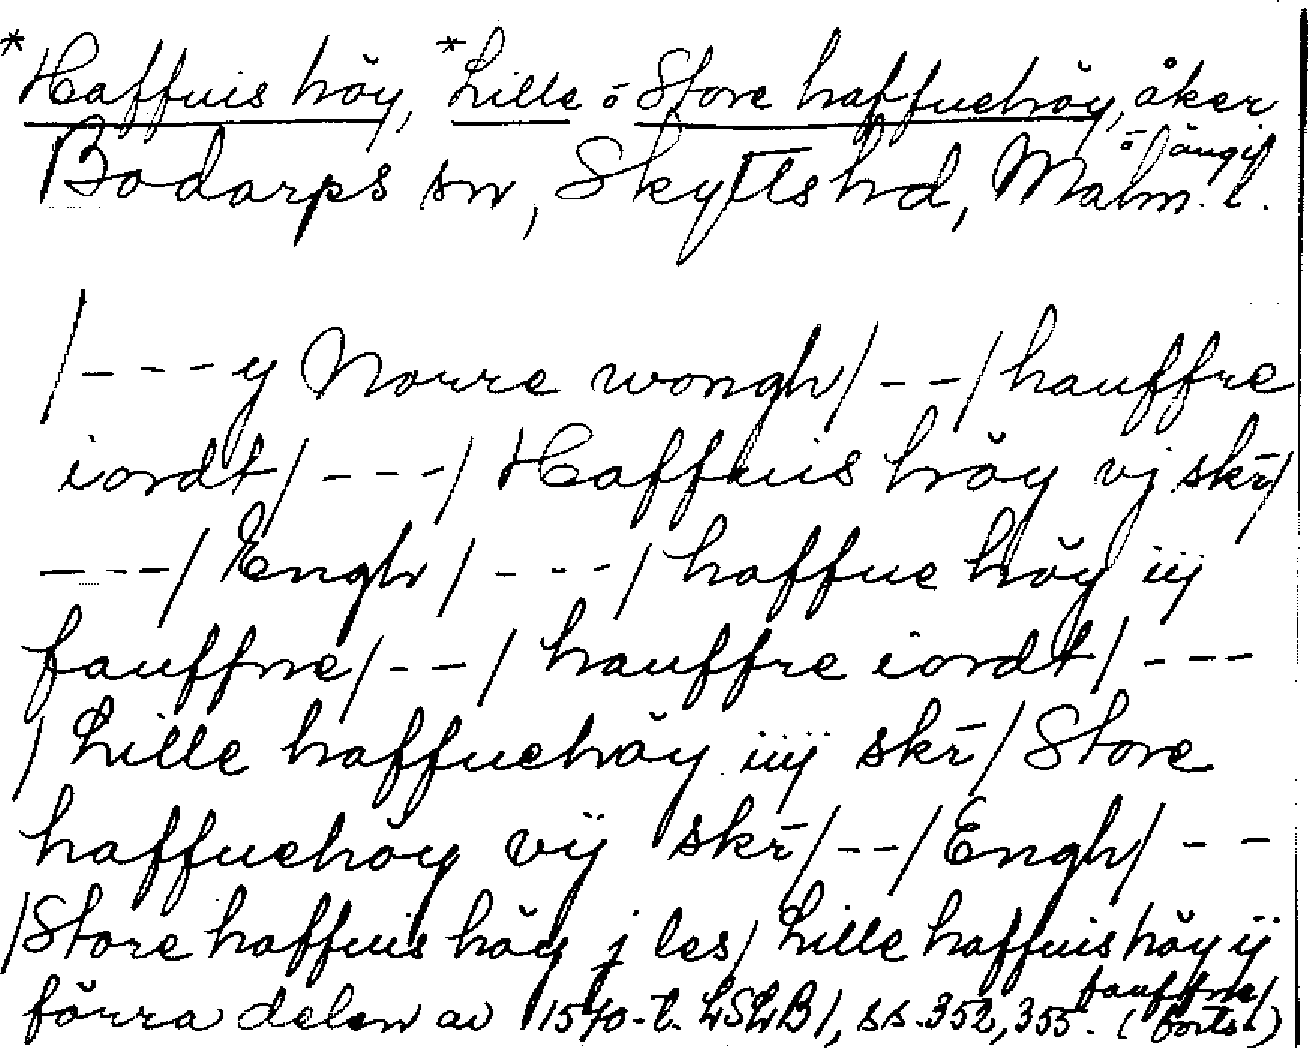 *Haffuis höy, *Lille o Store haffuehöy, åker
o ängi
Bodarps sn, Skytts hd, Malm. l.
/---y Norre wongh/--/hauffre
iordt/---/ Haffuis höy vj skr̄/
---/Engh/---/haffue höy iij
fauffne/--/ hauffre iordt/---
/Lille haffuehöy iiij skr̄/Store
haffuehöy vij skr̄/--/Engh/--
/Store haffuis höy j les/ Lille haffuis höy ij
fauffne/
förra delen av 1570-t. LSLB1, ss. 352, 355. (forts.)